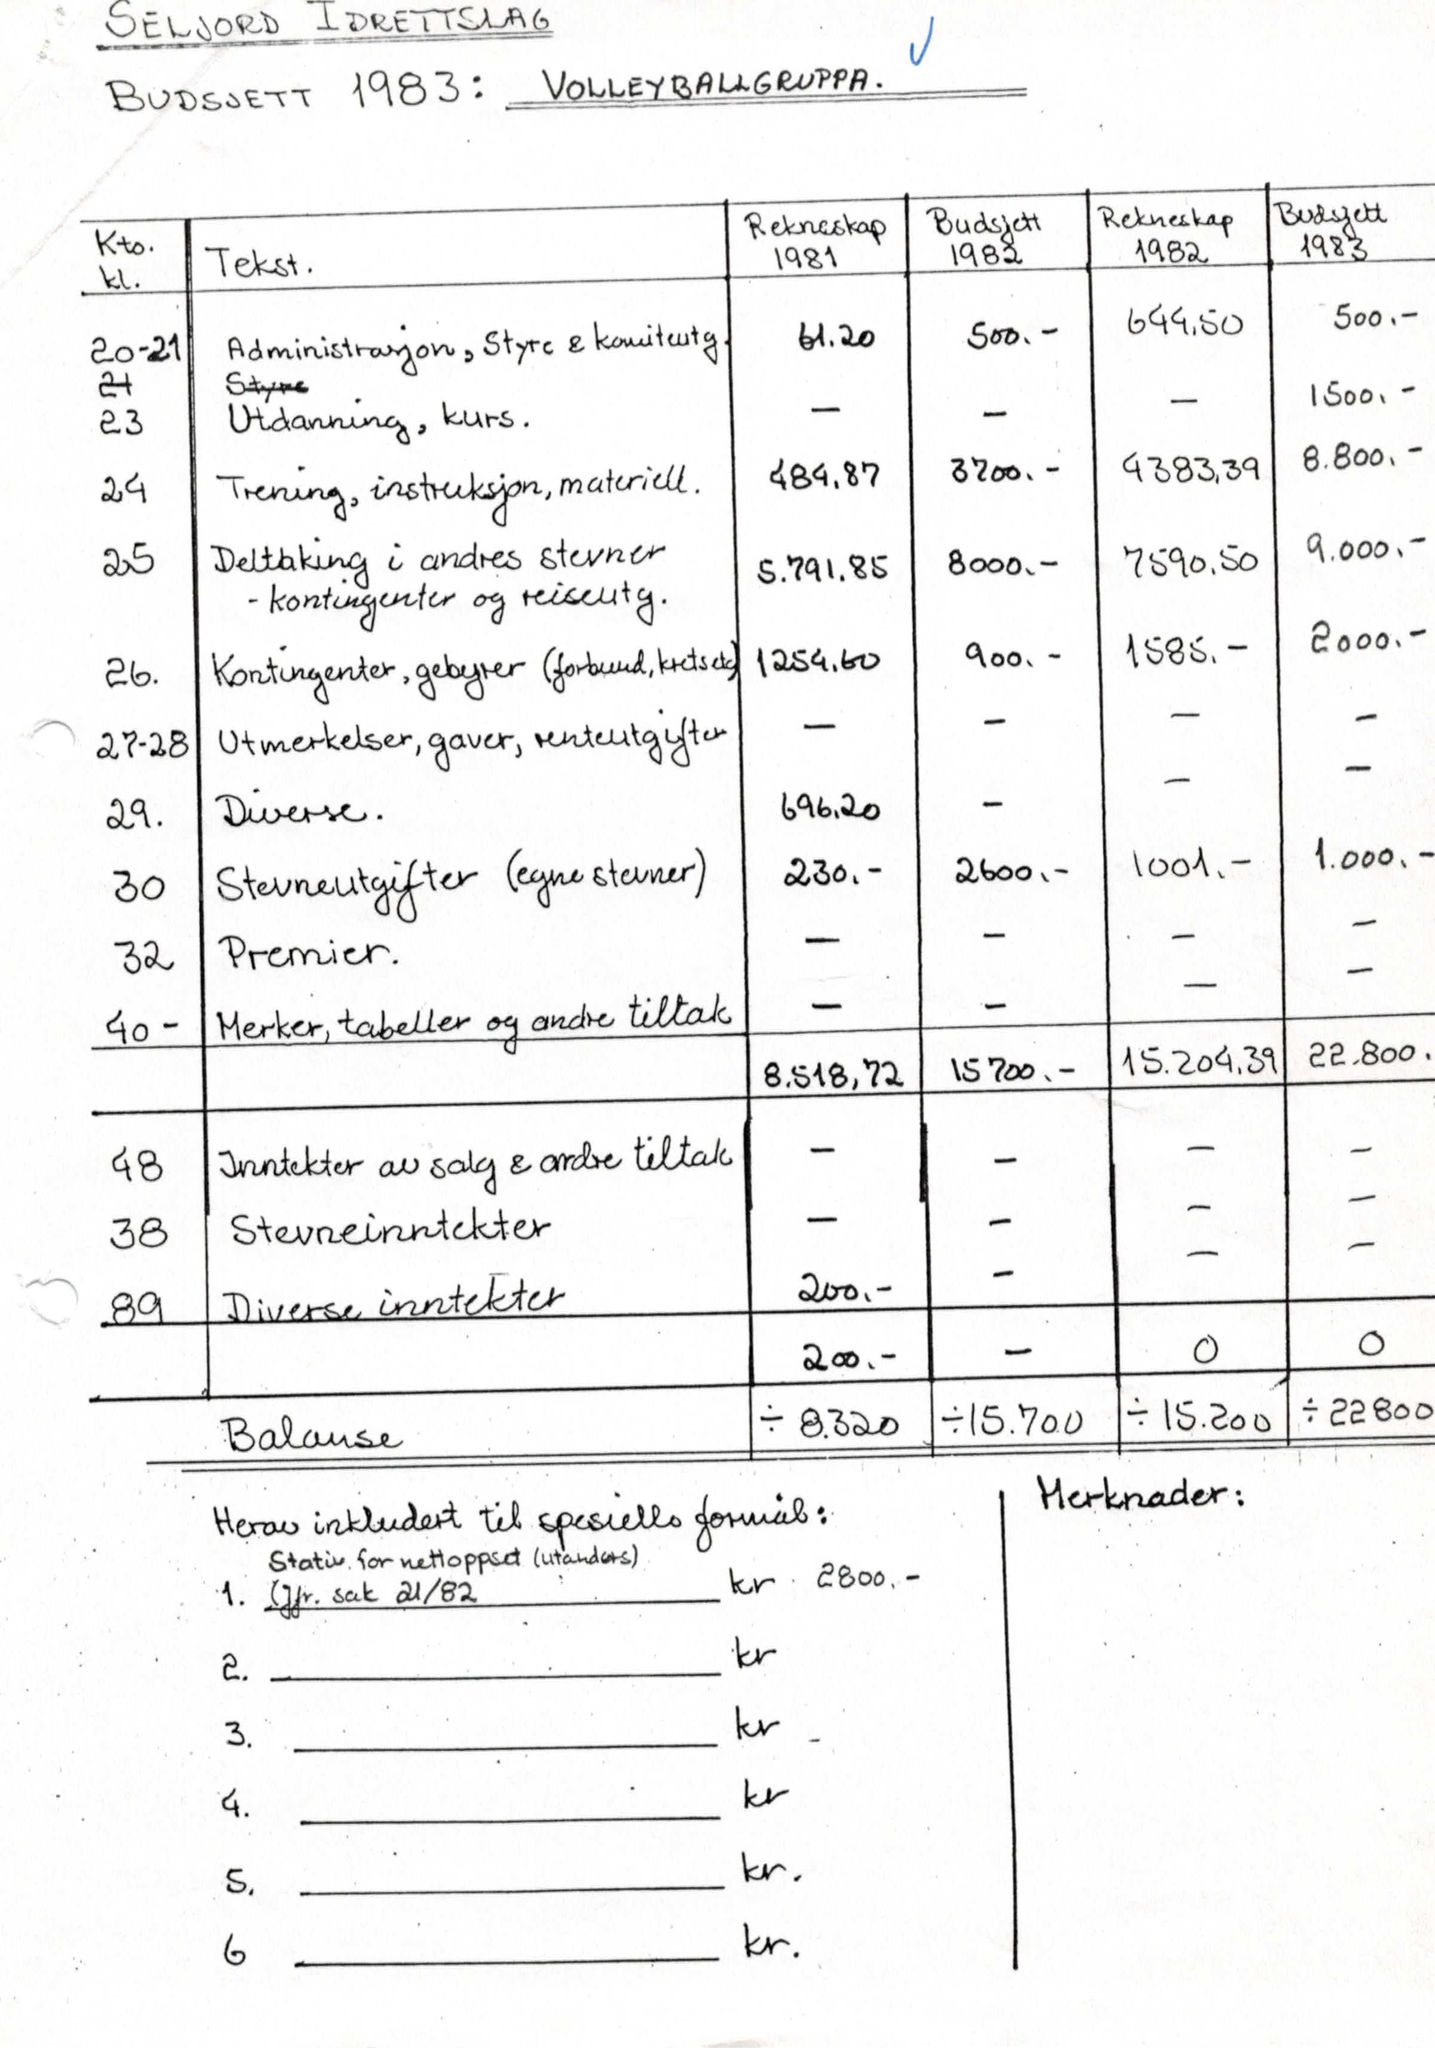 SELJORD IDRETTSLAG
BUDSJETT 1983: VOLLEYBALLGRUPPA.
Kto. kl. Tekst. Rekneskap 1981 Budsjett 1982 Rekneskap 1982 Budsjett 1983
20-21 Administrasjon, Styre & komiteutg. 61.20 500.- 644,50 500.-
21 Styre
23 Utdanning, kurs. — — — 1500.-
24 Trening, instruksjon, materiell. 484,87 3700.- 4383,39 8.800.-
25 Deltaking i andres stevner 5.791.85 8000.- 7590,50 9.000.-
- kontingenter og reiseutg.
26. Kontingenter, gebyrer (forbund, krets etc) 1254.60 900.- 1585.- 2000.-
27-28 Utmerkelser, gaver, renteutgifter — — — —
29. Diverse. 696.20 — — —
30 Stevneutgifter (egne stevner) 230.- 2600.- 1001.- 1.000.-
32 Premier. — — — —
40- Merker, tabeller og andre tiltak — — — —
8.518,72 15700.- 15.204,39 22.800.
48 Inntekter av salg & andre tiltak — — — —
38 Stevneinntekter — — — —
89 Diverse inntekter 200.- — — —
200.- — 0 0
Balanse ÷ 8.320 ÷15.700 ÷ 15.200 ÷ 22800
Herav inkludert til spesielle formål: Merknader:
Stativ for nettoppset (utandørs)
1. (Jfr. sak 21/82 kr 2800.-
2. kr
3. kr -
4. kr
5. kr.
6 kr.